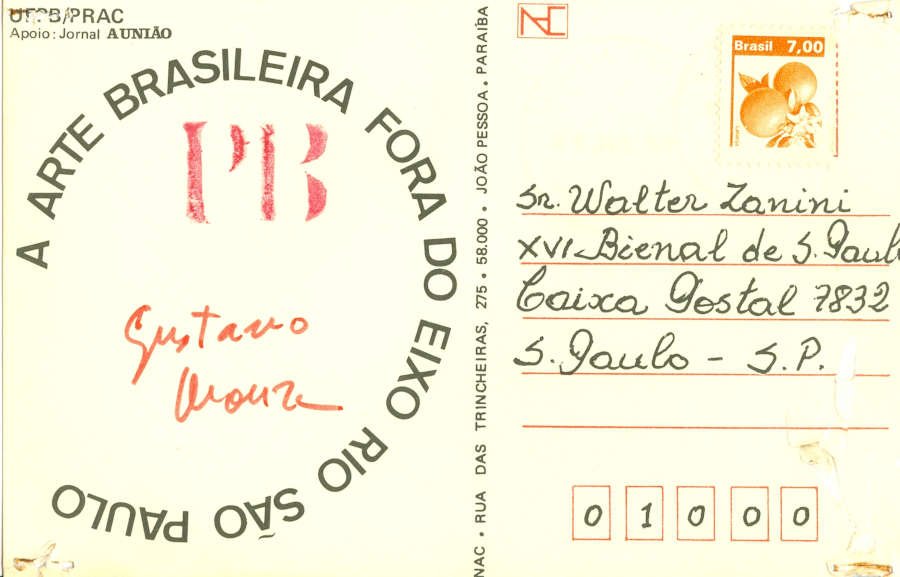 UFPB/PRAC
Apoio: Jornal A UNIÃO
A ARTE BRASILEIRA FORA DO EIXO RIO SÃO PAULO
PB
Gustavo
Moura
NAC • RUA DAS TRINCHEIRAS, 275 • 58.000 • JOÃO PESSOA • PARAÍBA
NAC
Brasil 7,00
Sr. Walter Zanini
XVI Bienal de S. Paulo
Caixa Postal 7832
S. Paulo - S.P.
0 1 0 0 0